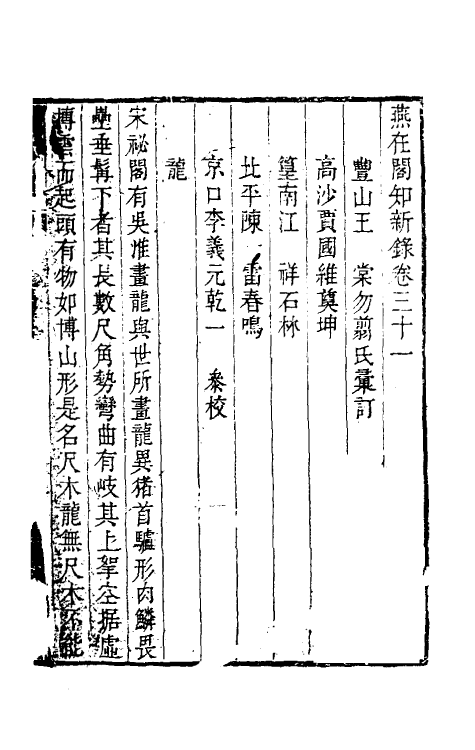 燕在閣知新錄卷三十一
豐山王　棠勿翦氏彙訂
高沙賈國維奠坤
篁南江　祥石林
北平陳　雷春鳴
京口李義元乾一　叅校
龍
宋祕閣有吳淮畫龍與世所畫龍異猪首驢形肉鱗畏
壘垂髯下者其長數尺角勢彎曲有岐其上挐空据虛
搏雲而起頭有物如博山形是名尺木龍無尺木不能